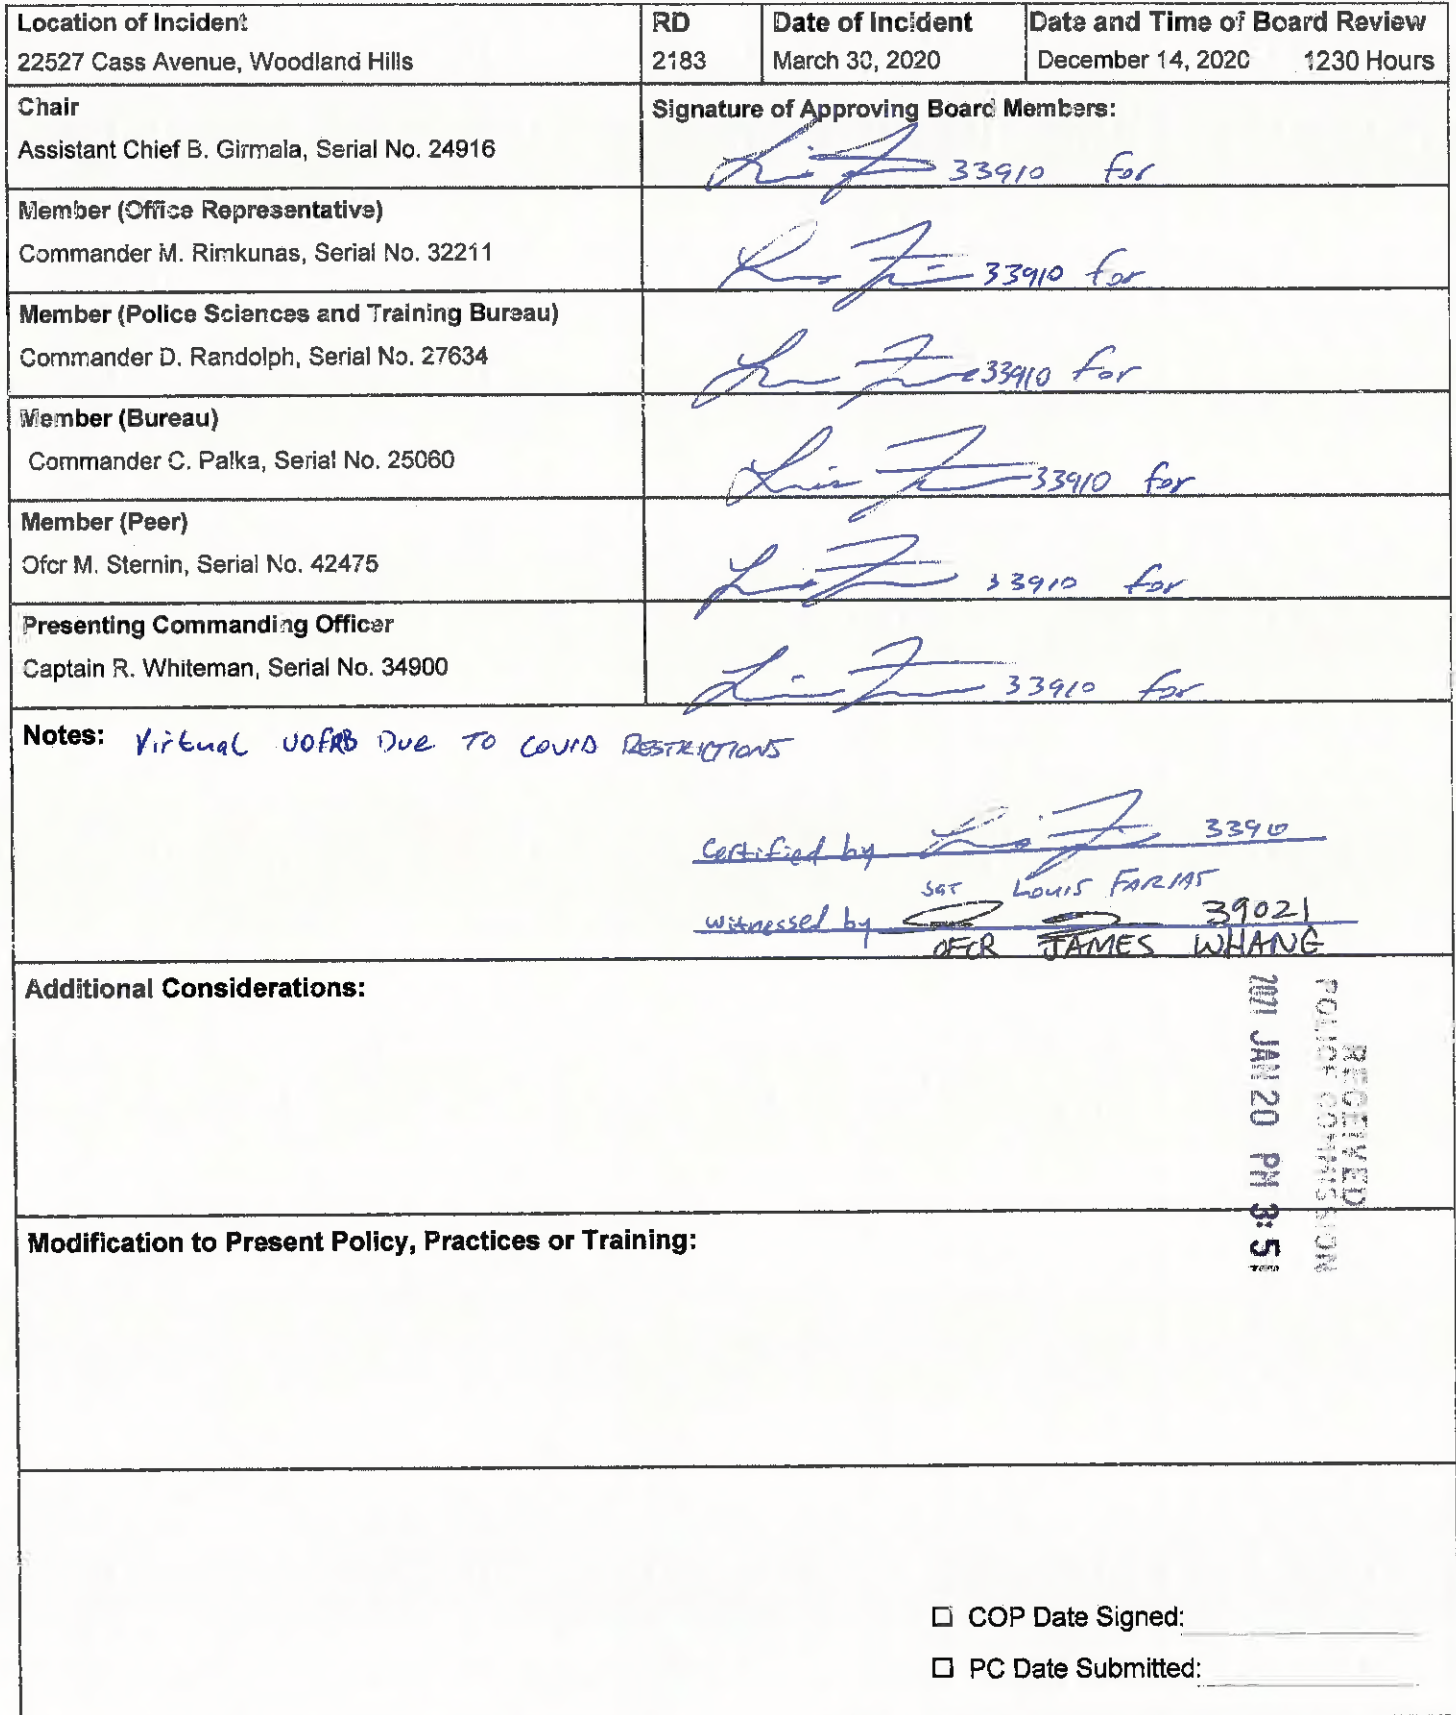 Location of Incident
22527 Cass Avenue, Woodland Hills
RD
2183
Date of Incident
March 30, 2020
Date and Time of Board Review
December 14, 2020 1230 Hours
Chair
Assistant Chief B. Girmala, Serial No. 24916
Signature of Approving Board Members:
33910 for
Member (Office Representative)
Commander M. Rimkunas, Serial No. 32211
33910 for
Member (Police Sciences and Training Bureau)
Commander D. Randolph, Serial No. 27634
33910 for
Member (Bureau)
Commander C. Palka, Serial No. 25060
33910 for
Member (Peer)
Ofcr M. Sternin, Serial No. 42475
33910 for
Presenting Commanding Officer
Captain R. Whiteman, Serial No. 34900
33910 for
Notes: Virtual UOFRB Due TO COVID RESTRICTIONS
Certified by 33910
SGT LOUIS FARIAS
witnessed by 39021
OFCR JAMES WHANG
Additional Considerations:
RECEIVED
POLICE COMMISSION
2021 JAN 20 PM 3:51
Modification to Present Policy, Practices or Training:
COP Date Signed:
PC Date Submitted: